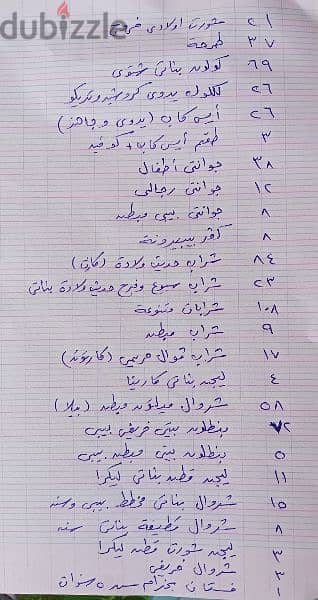 dubizzle
٢١ شورت اولادى خروج
٣٧ طرحه
٦٩ كولون بناتى شتوى
٢٦ كلكوك يدوى كروشيه وتريكو
٢٦ أيس كاب (يدوى وجاهز)
٣ طقم أيس كاب + كوفيه
٣٨ جوانتى أطفال
١٢ جوانتى رجالى
٨ جوانتى بيبى مبطن
٨ كفر ببيرونة
٨٤ شراب حديث ولادة
٢٣ شراب سبوع وفرح حديث ولادة بناتى
١٠٨ شرابات متنوعة
٩ شراب مبطن
١٧ شراب طوال حريمى (كارتونه)
٤ ليجن بناتى كارينا
٥٨ شروال ميلتون مبطن (ميلا)
٧٢ بنطلون بيتى خريفى بيبى
٥ بنطلون بيتى مبطن بيبى
١١ ليجن قطن بناتى ليكرا
١٥ شروال بناتى مخطط بيبى وسنه
٨ شروال قطيفة بناتى سنه
٣ ليجن شورت قطن ليكرا
٣ شروال خريفى
١ فستان بحزام سن ٥ سنوات